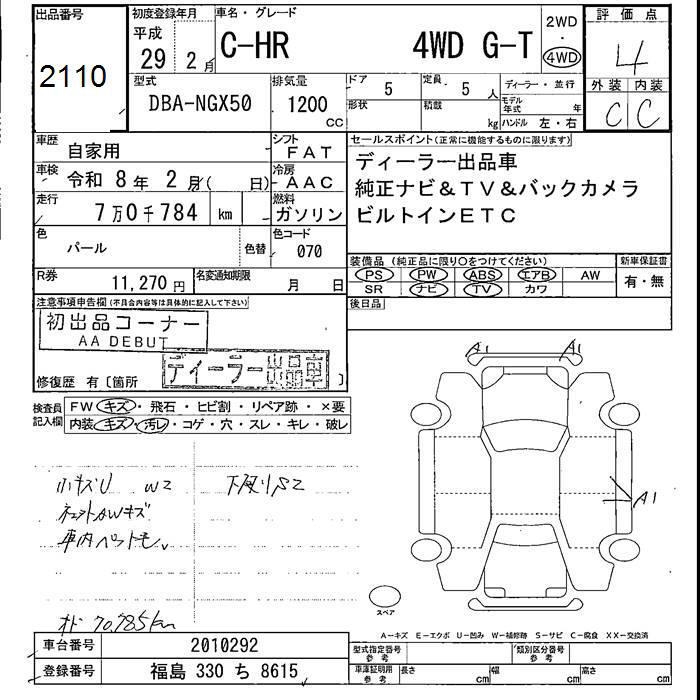 出品番号
2110
初度登録年月
平成
29 2月
車名・グレード
C-HR 4WD G-T
2WD
・
4WD
評価点
4
外装 内装
C C
型式
DBA-NGX50
排気量
1200
CC
ドア 5
形状
定員 5人
積載 kg
ディーラー・並行
モデル年式 年
ハンドル 左・右
車歴 自家用
シフト FAT
車検 令和 8年 2月( 日)
冷房 AAC
走行 7万0千784 km
燃料 ガソリン
色 パール 色替
色コード 070
R券 11,270円
名変通知期限 月 日
セールスポイント(正常に機能するものに限ります)
ディーラー出品車
純正ナビ&TV&バックカメラ
ビルトインETC
装備品(純正品に限り○をつけてください)
新車保証書
PS PW ABS エアB AW
有・無
SR ナビ TV カワ
後日品
注意事項申告欄(不具合内容等は具体的に記入して下さい)
初出品コーナー
AA DEBUT
ディーラー出品車
修復歴 有〔箇所 〕
検査員記入欄
FW キズ・飛石・ヒビ割・リペア跡・×要
内装 キズ・汚レ・コゲ・穴・スレ・キレ・破レ
小キズU W2 下廻りS2
キズ
車内ペットモ
70,785km
A1 A1
A1
スペア
A-キズ E-エクボ U-凹み W-補修跡 S-サビ C-腐食 XX-交換済
車台番号 2010292
登録番号 福島 330 ち 8615
型式指定番号 参考
類別区分番号 参考
車庫証明用 参考
長さ cm 幅 cm 高さ cm